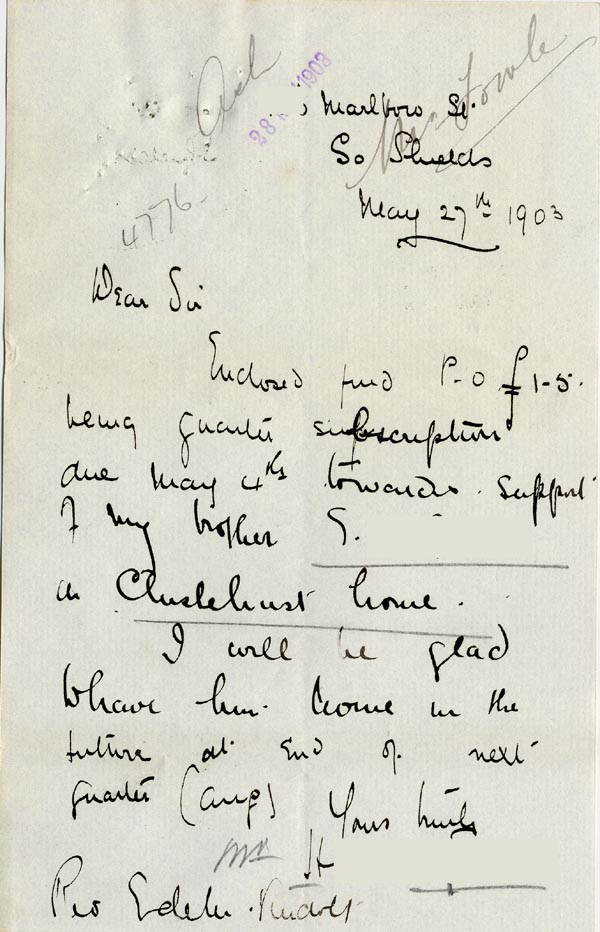 Ack
28 1903
Mr Fowle
Marlboro St.
So Shields
May 27th 1903
4776
Dear Sir
Enclosed find P-O £1-5.
being quarter subscription
due May 4ths towards support
of my brother G.
in Chislehurst home.
I will be glad
to have him home in the
future at End of next
quarter (aug)
Yours truly
H
Rev Edde Rudolf